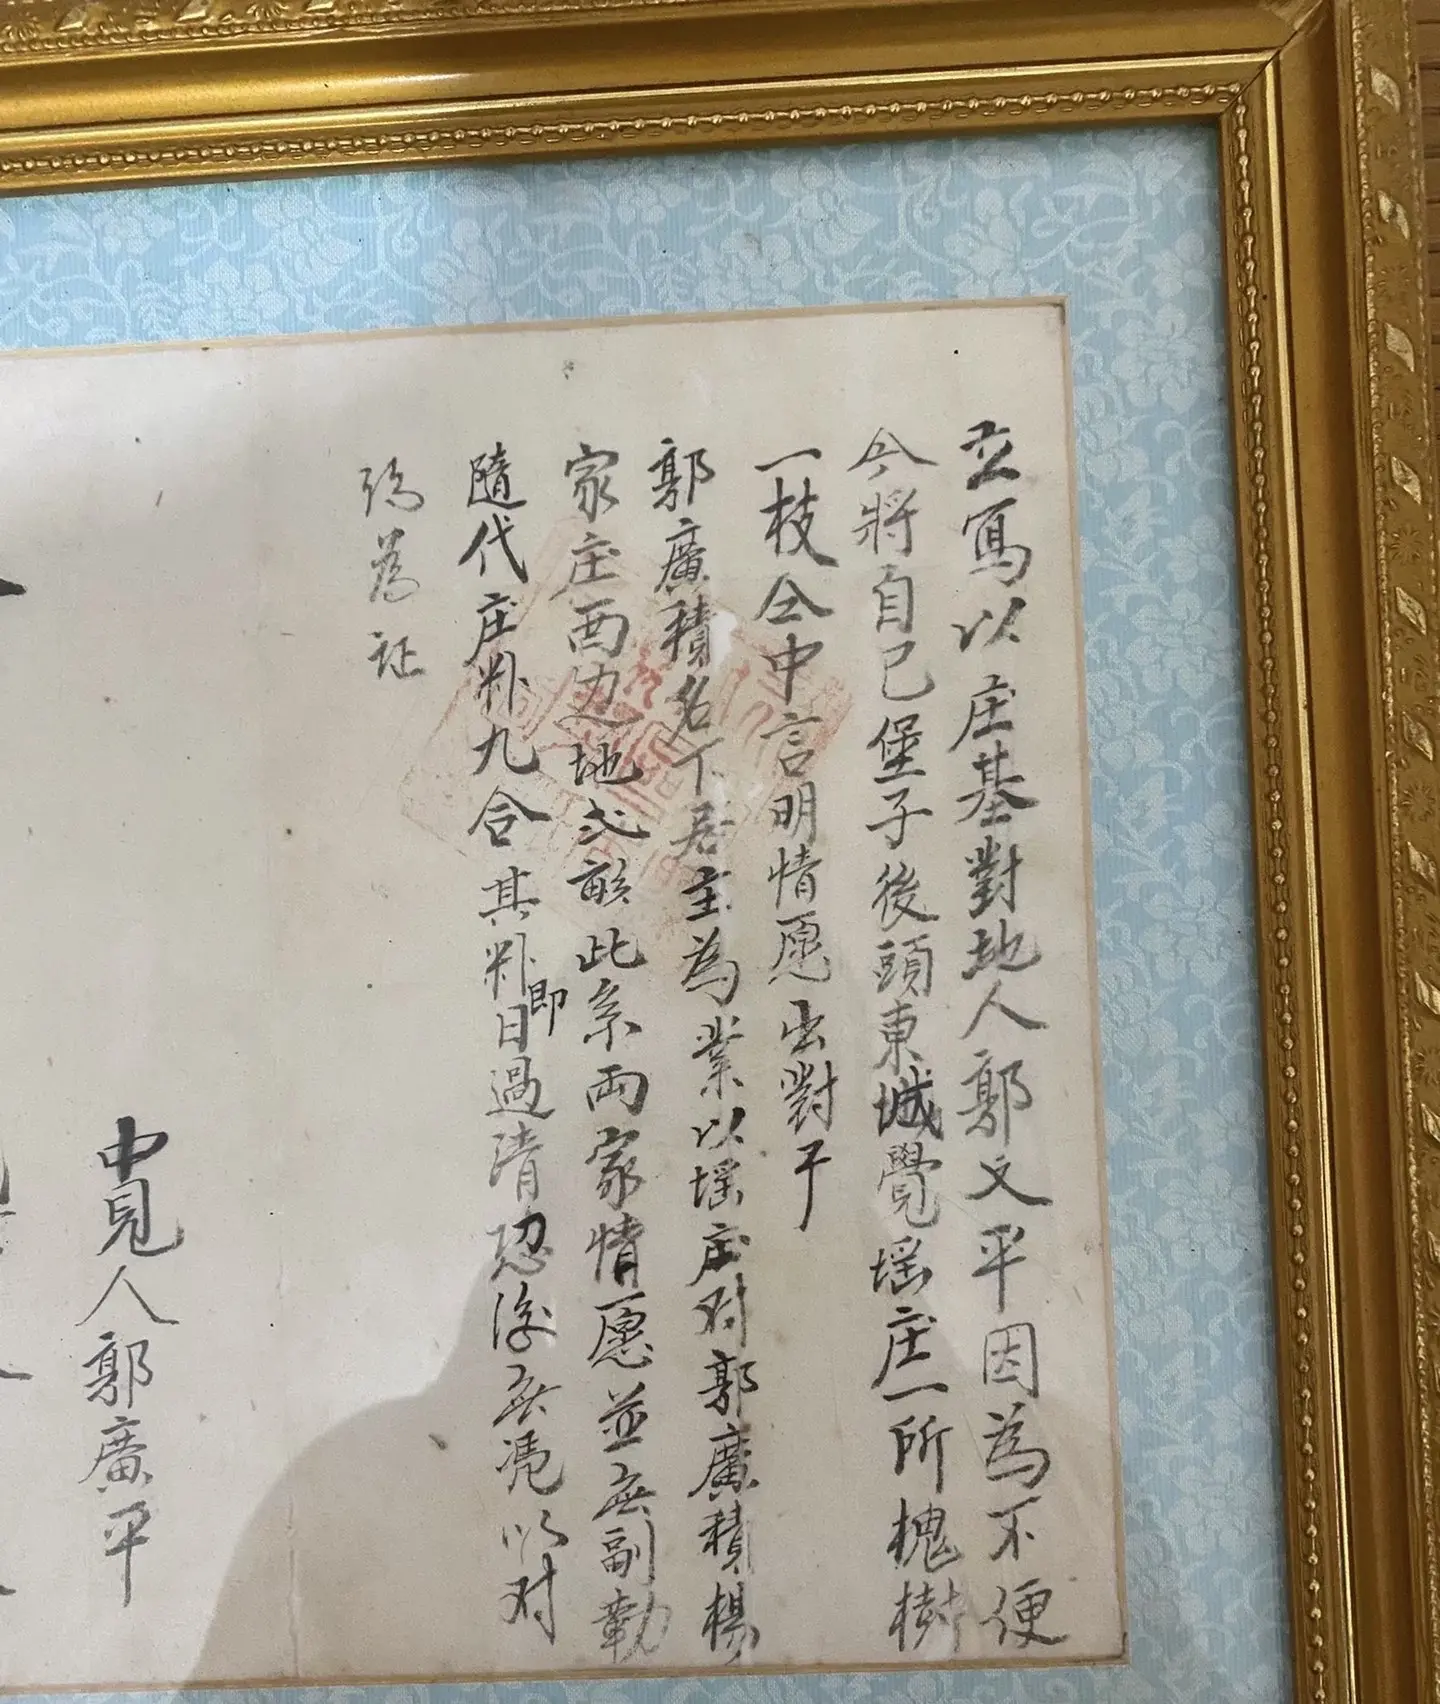 立寫以庄基對地人郭文平因為不便
今將自己堡子後頭東城覺塬庄一所槐樹
一枝仝中言明情愿出對于
郭廣積名下居主為業以塬庄对郭廣積楊
家庄西边地弍畝此系两家情愿並無副勒
隨代庄粆九合其粆即日過清恐後無凴以对
約為証
中見人郭廣平